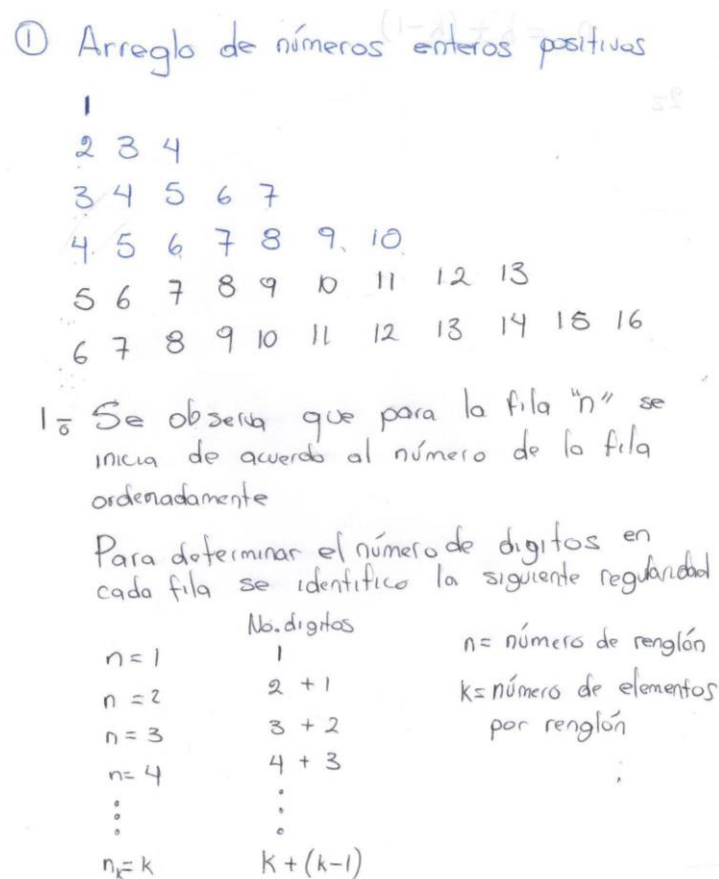 ① Arreglo de números enteros positivos
1
2 3 4
3 4 5 6 7
4. 5 6 7 8 9. 10
5 6 7 8 9 10 11 12 13
6 7 8 9 10 11 12 13 14 15 16
1º Se observa que para la fila "n" se
inicia de acuerdo al número de la fila
ordenadamente
Para determinar el número de digitos en
cada fila se identifico la siguiente regularidad
No. digitos
n = 1 1
n = 2 2 + 1
n = 3 3 + 2
n = 4 4 + 3
n = número de renglón
k = número de elementos
por renglón
nₖ = k k + (k-1)